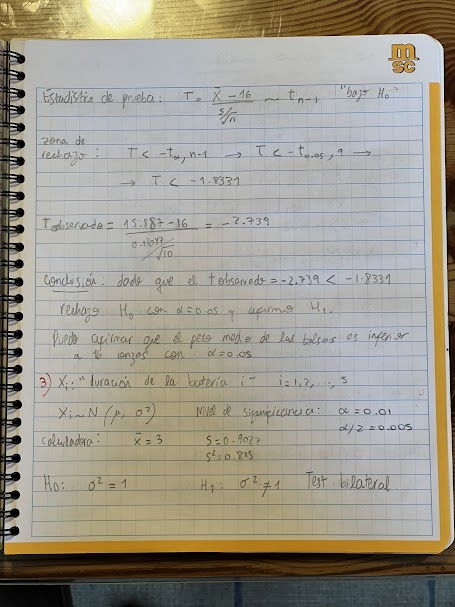 msc
Estadístico de prueba: T = X̄ - 16 / S/√n ~ t n-1 "bajo H0"
zona de
rechazo: T < -tα, n-1 → T < -t0.05, 9 →
→ T < -1.8331
Tobservado = 15.887 - 16 / /√10 = -2.739
Conclusión: dado que el tobservado = -2.739 < -1.8331
rechazo H0 con α = 0.05 y afirmo H1.
Puedo afirmar que el peso medio de las bolsas es inferior
a 16 onzas con α = 0.05
3) Xi: "duración de la batería i" i = 1, 2, ..., 5
Xi ~ N (μ, σ²) Nivel de significancia: α = 0.01
α/2 = 0.005
Calculadora: x̄ = 3 S = 0.9027
S² = 0.815
H0: σ² = 1 H1: σ² ≠ 1 Test bilateral